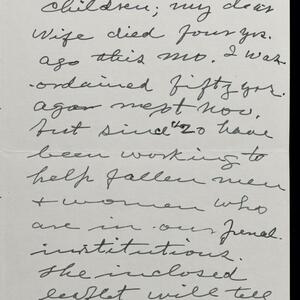 children; my dear
wife died four yrs.
ago this mo. I was
ordained fifty yrs.
ago next Nov.
but since '20 have
been working to
help fallen men
+ women who
are in our penal
institutions.
The inclosed
leaflet will tell